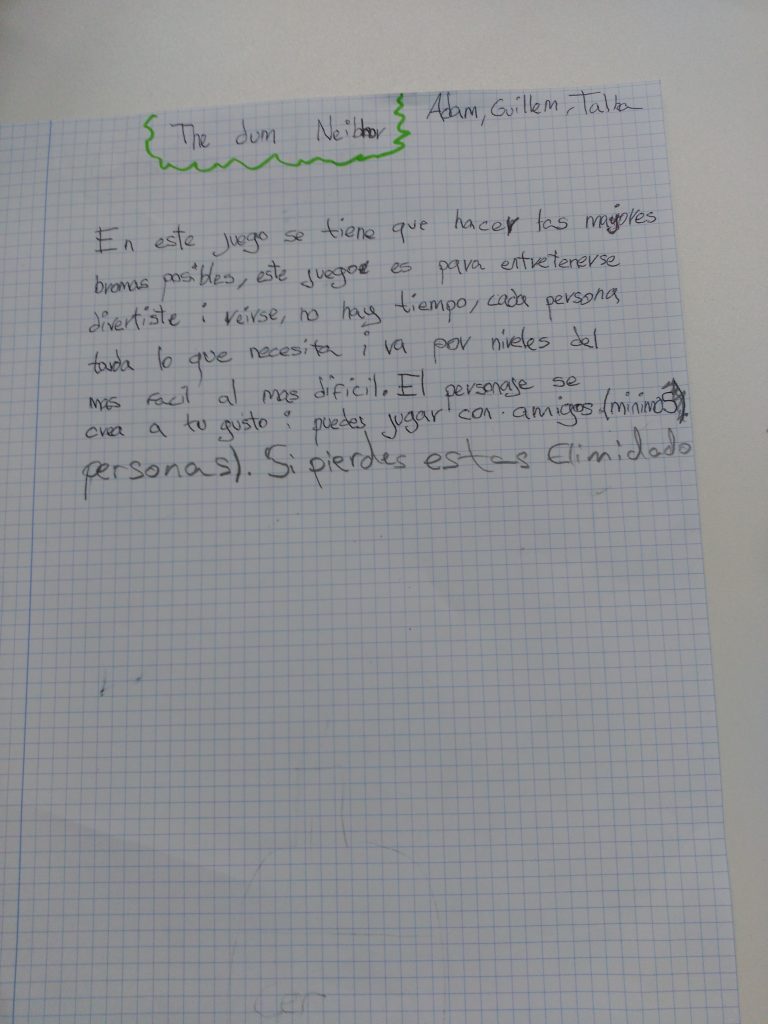 The dum Neibhor
Adam, Guillem, Talha
En este juego se tiene que hacer las mayores
bromas posibles, este juego es para entretenerse
divertiste i reirse, no hay tiempo, cada persona
tarda lo que necesita i va por niveles del
mas facil al mas dificil. El personaje se
crea a tu gusto i puedes jugar con amigos (minimo
personas). Si pierdes estas Elimidado